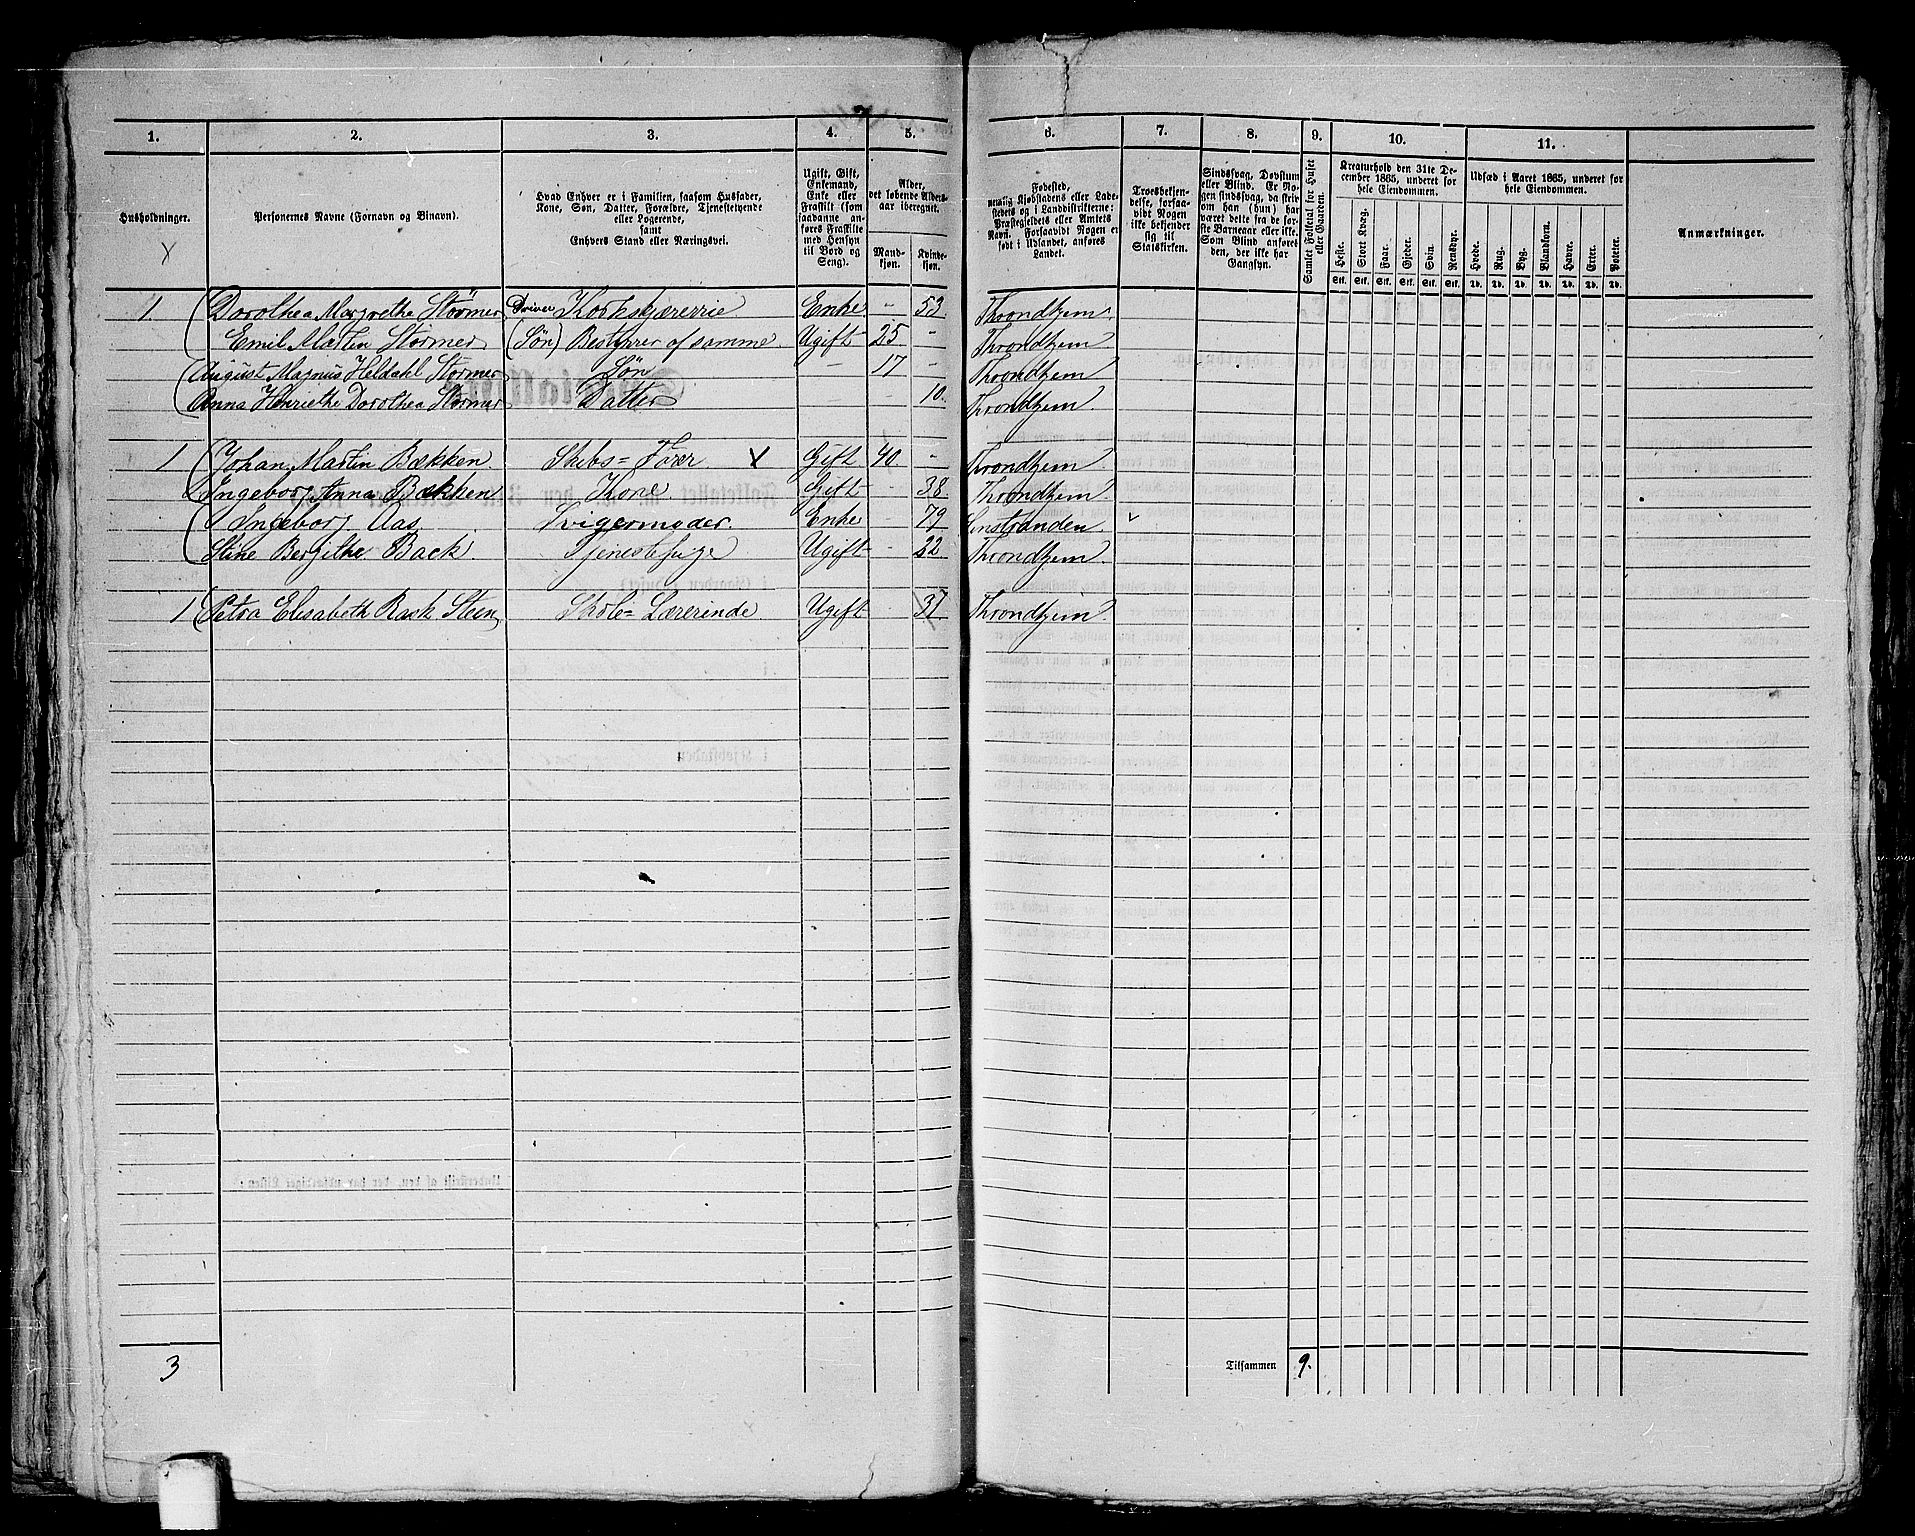 1. 2. 3. 4. 5. 6. 7. 8. 9. 10. 11.
Husholdninger.
Personernes Navne (Fornavn og Binavn).
Hvad Enhver er i Familien, saasom Husfader, Kone, Søn, Datter, Forældre, Tjenestetyende eller Logerende, samt Enhvers Stand eller Næringsvei.
Ugift, Gift, Enkemand, Enke eller Fraskilt (som saadanne anføres Fraskilte med Hensyn til Bord og Seng).
Alder, det løbende Alders-aar iberegnet.
Mand-kjøn. Kvinde-kjøn.
Fødested, nemlig Kjøbstadens eller Ladestedets og i Landdistrikterne: Præstegjeldets eller Amtets Navn. Forsaavidt Nogen er født i Udlandet, anføres Landet.
Troesbekjendelse, forsaavidt Nogen ikke bekjender sig til Statskirken.
Sindssvag, Døvstum eller Blind. Er Nogen sindssvag, da skriv om han (hun) har været dette fra de første Barneaar eller ikke. Som Blind anføres den, der ikke har Gangsyn.
Samlet Folketal for Huset eller Gaarden.
Kreaturhold den 31te December 1865, underet for hele Eiendommen.
Heste. Stort Kvæg. Faar. Gjeder. Svin. Rensdyr.
Stk. Stk. Stk. Stk. Stk. Stk.
Udsæd i Aaret 1865, underet for hele Eiendommen.
Hvede. Rug. Byg. Blandkorn. Havre. Erter. Poteter.
Td. Td. Td. Td. Td. Td. Td.
Anmærkninger.
1 Dorothea Margrethe Störmer Driver Korkskjærerrie Enke - 53 Throndhjem.
Emil Martin Störmer (Søn) Bestyrer af samme. Ugift 25 - Throndhjem
August Magnus Heldahl Störmer Søn - 17 - Throndhjem
Anna Henriethe Dorothea Störmer Datter - - 10. Throndhjem.
1 Johan Martin Bækken. Skibs= Fører X Gift 40. - Throndhjem
Ingeborg Anna Bækken Kone Gift - 38 Throndhjem.
Ingeborg Aas. Svigermoder. Enke - 79 Sinstranden.
Stine Bergithe Back. Tjenestepige Ugift - 22 Throndhjem
1 Petra Elisabeth Back Steen Skole= Lærerinde Ugift - 37 Throndhjem.
3
Tilsammen 9.